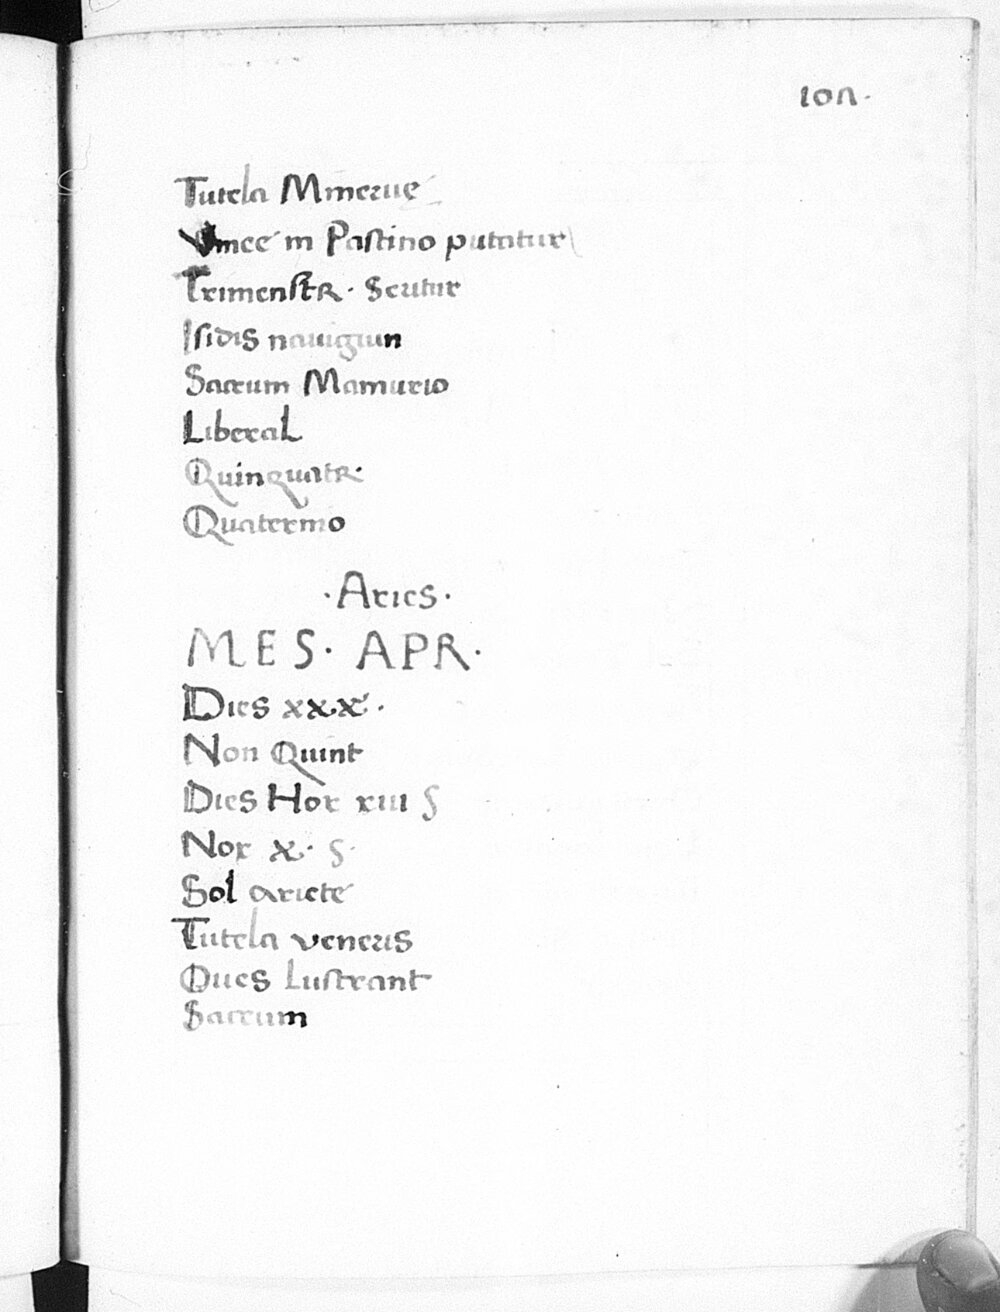 102.
Tutela Mineruę
Vineę in Pastino putatur
TrimenstR. Seritur
Isidis nauigiun
Sacrum Mamurio
LiberaL
QuinquatR.
Quaterino
.Aries.
MES. APR.
Dies xxx.
Non Quint
Dies Hor xiii S
Nox x. S.
Sol ariete
Tutela veneris
Oues Lustrant
Sacrum